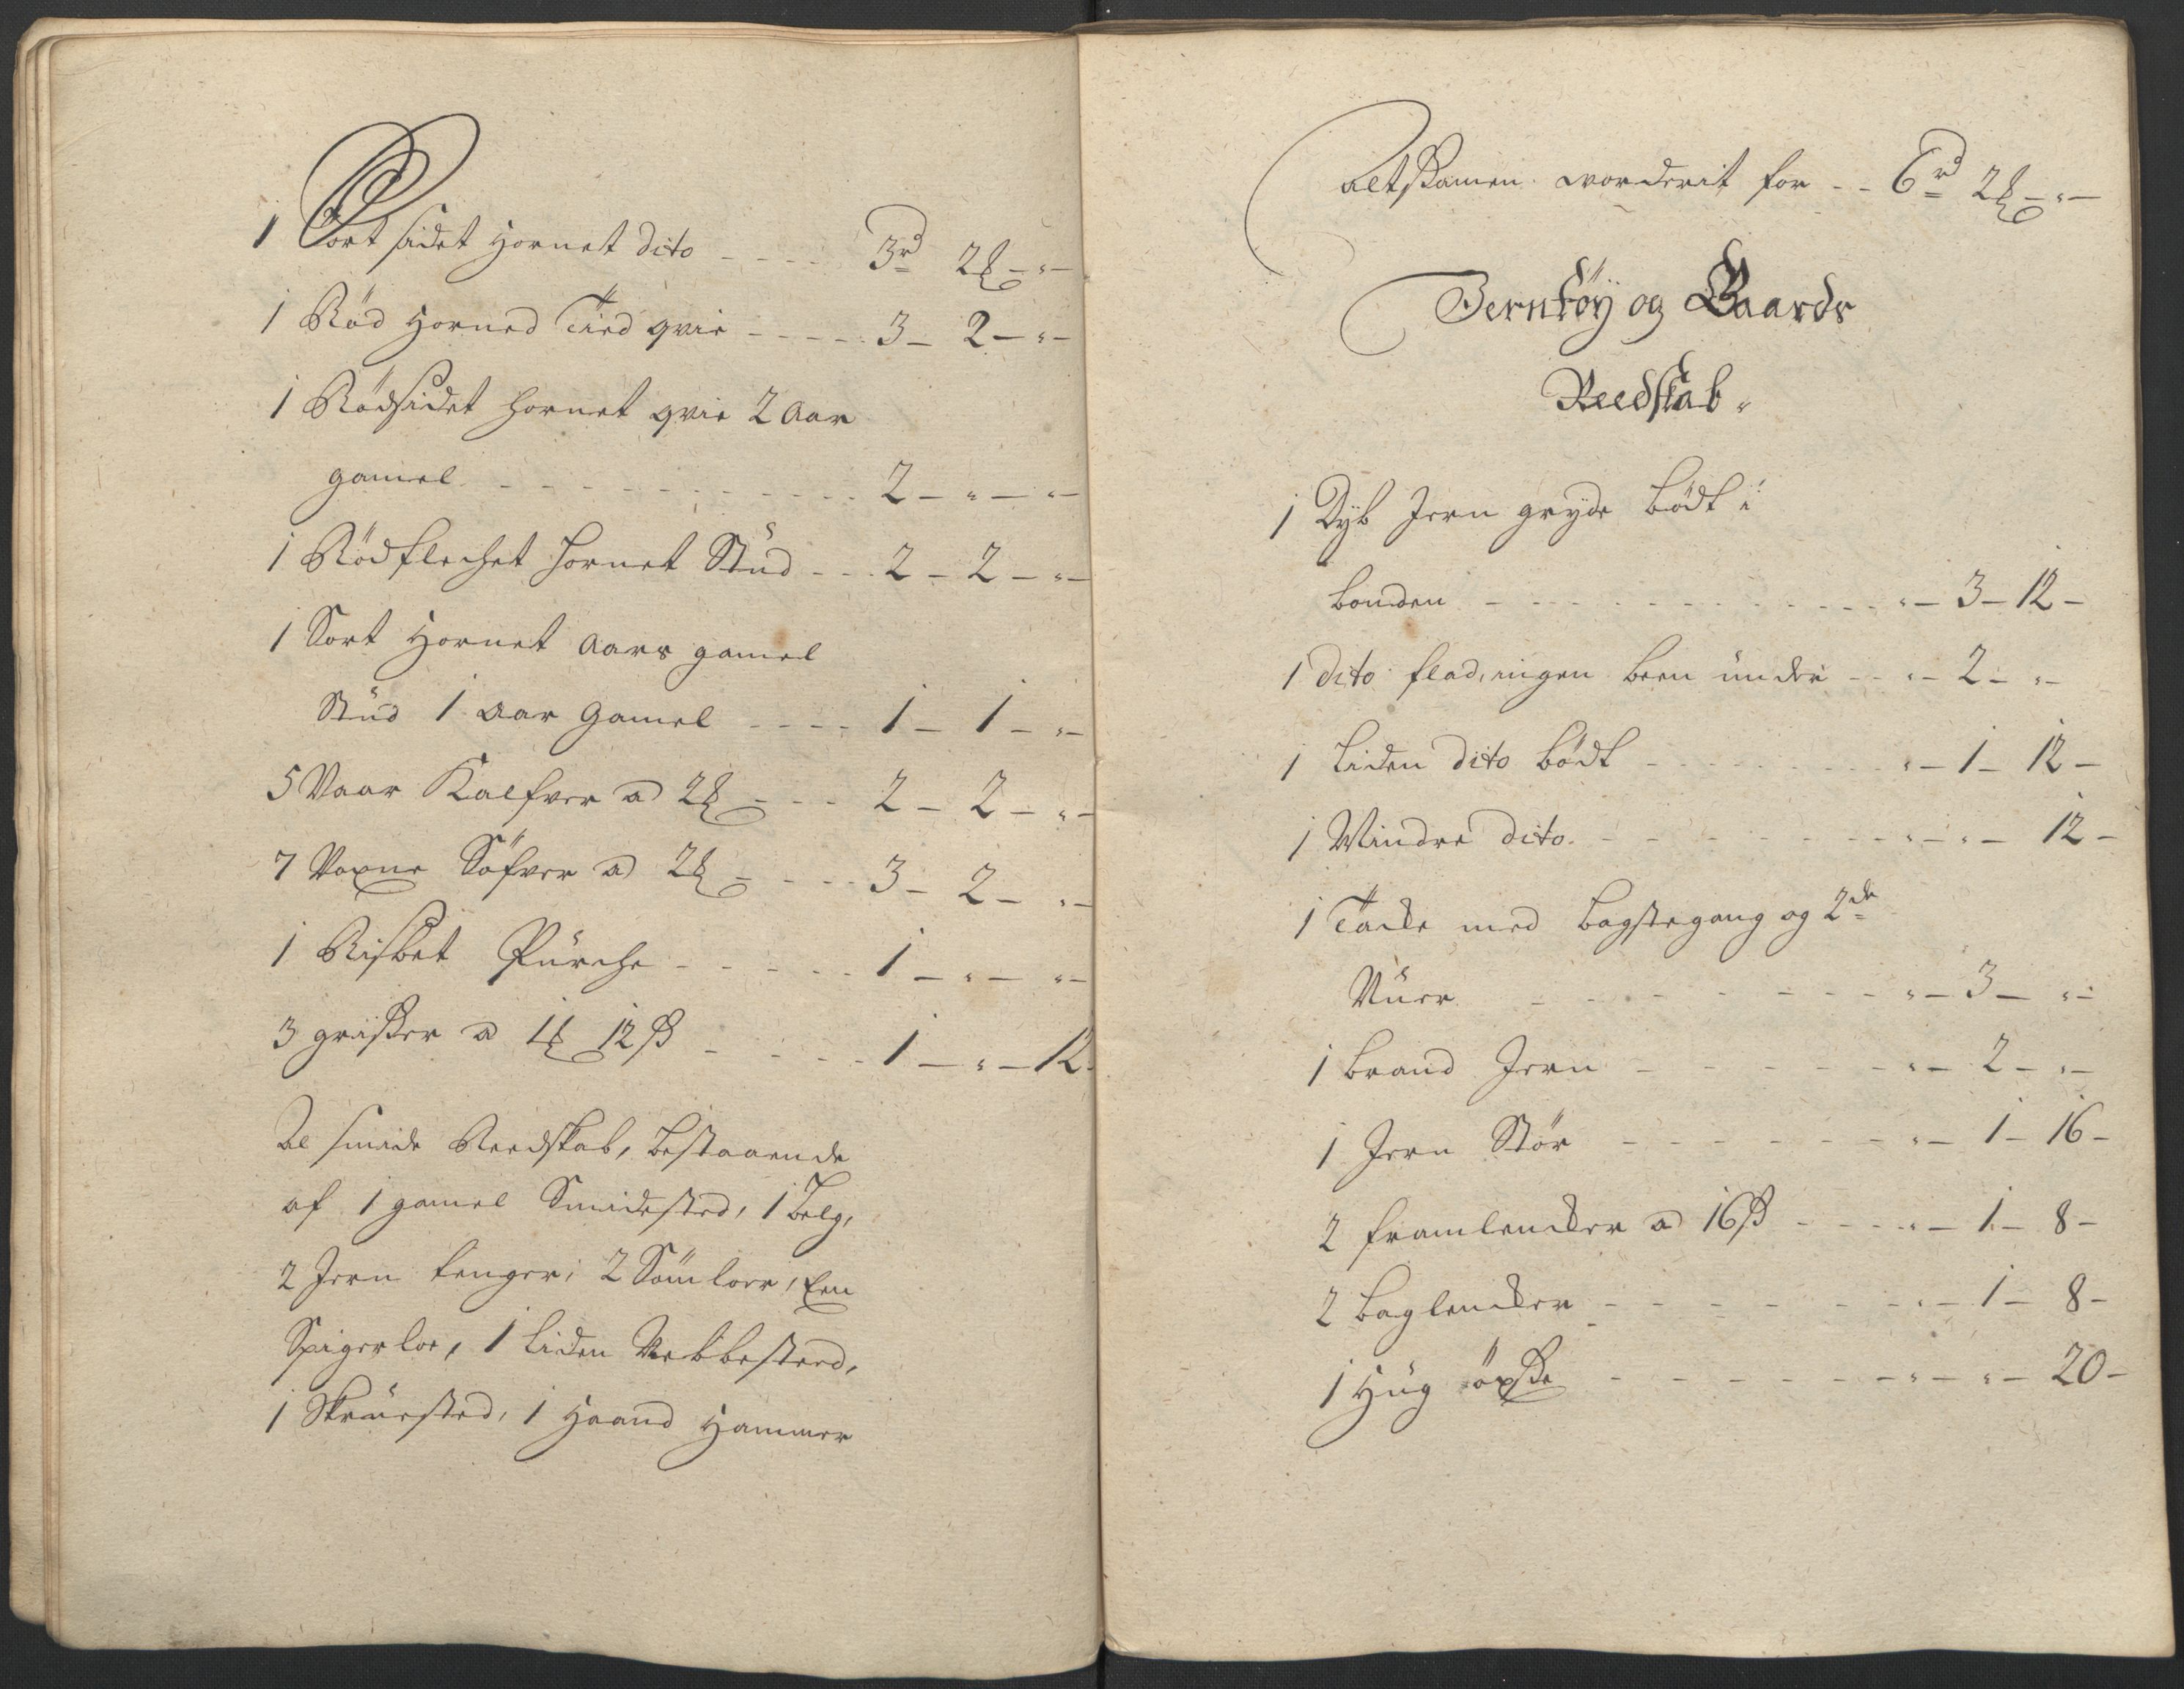 1 Sort sidet Hornet dito - - - - 3rd 2 ₰ - " -
1 Rød Horned Tied qvie - - - - - 3 - 2 - " -
1 Rødsidet hornet qvie 2 Aar
gamel - - - - - - - - - - 2 - " - " -
1 Rødflechet hornet Stud - - - 2 - 2 - " -
1 Sort Hornet Aars gamel
Stud 1 Aar Gamel - - - - 1 - 1 - " -
5 Vaar Kalfver a 2 ₰ - - - 2 - 2 - " -
7 Voxne Söfver a 2 ₰ - - - - 3 - 2 - " -
1 Risbet Purche - - - - - 1 - " - " -
3 griser a 1 ₰ 12 ß - - - - - 1 - " - 12
Al smide Reedskab, bestaaende
af 1 gamel Smidested, 1 Belg,
2 Jern tenger; 2 Sömloer, Een
Spigerloe, 1 liden Nebbested,
1 Skruested, 1 Haand Hammer
altsamen vorderit for - - 6rd 2 ₰ - " -
Jerntöy og Gaards
Reedskab.
1 Dyb Jern gryde bødt i
bonden - - - - - - - - - - " - 3 - 12 -
1 dito flad, ingen been under - - " - 2 - " -
1 liden dito bødt - - - - - - - " - 1 - 12 -
1 Mindre dito. - - - - - - - " - " - 12 -
1 Tacke med bagstegang og 2de
Nuer - - - - - - - - - " - 3 - " -
1 brand Jern - - - - - - " - 2 - " -
1 Jern Stör - - - - - - - " - 1 - 16 -
2 framlencker a 16 ß - - - - " - 1 - 8 -
2 baglencker - - - - - - - " - 1 - 8 -
1 Hug öxse - - - - - - - " - " - 20 -